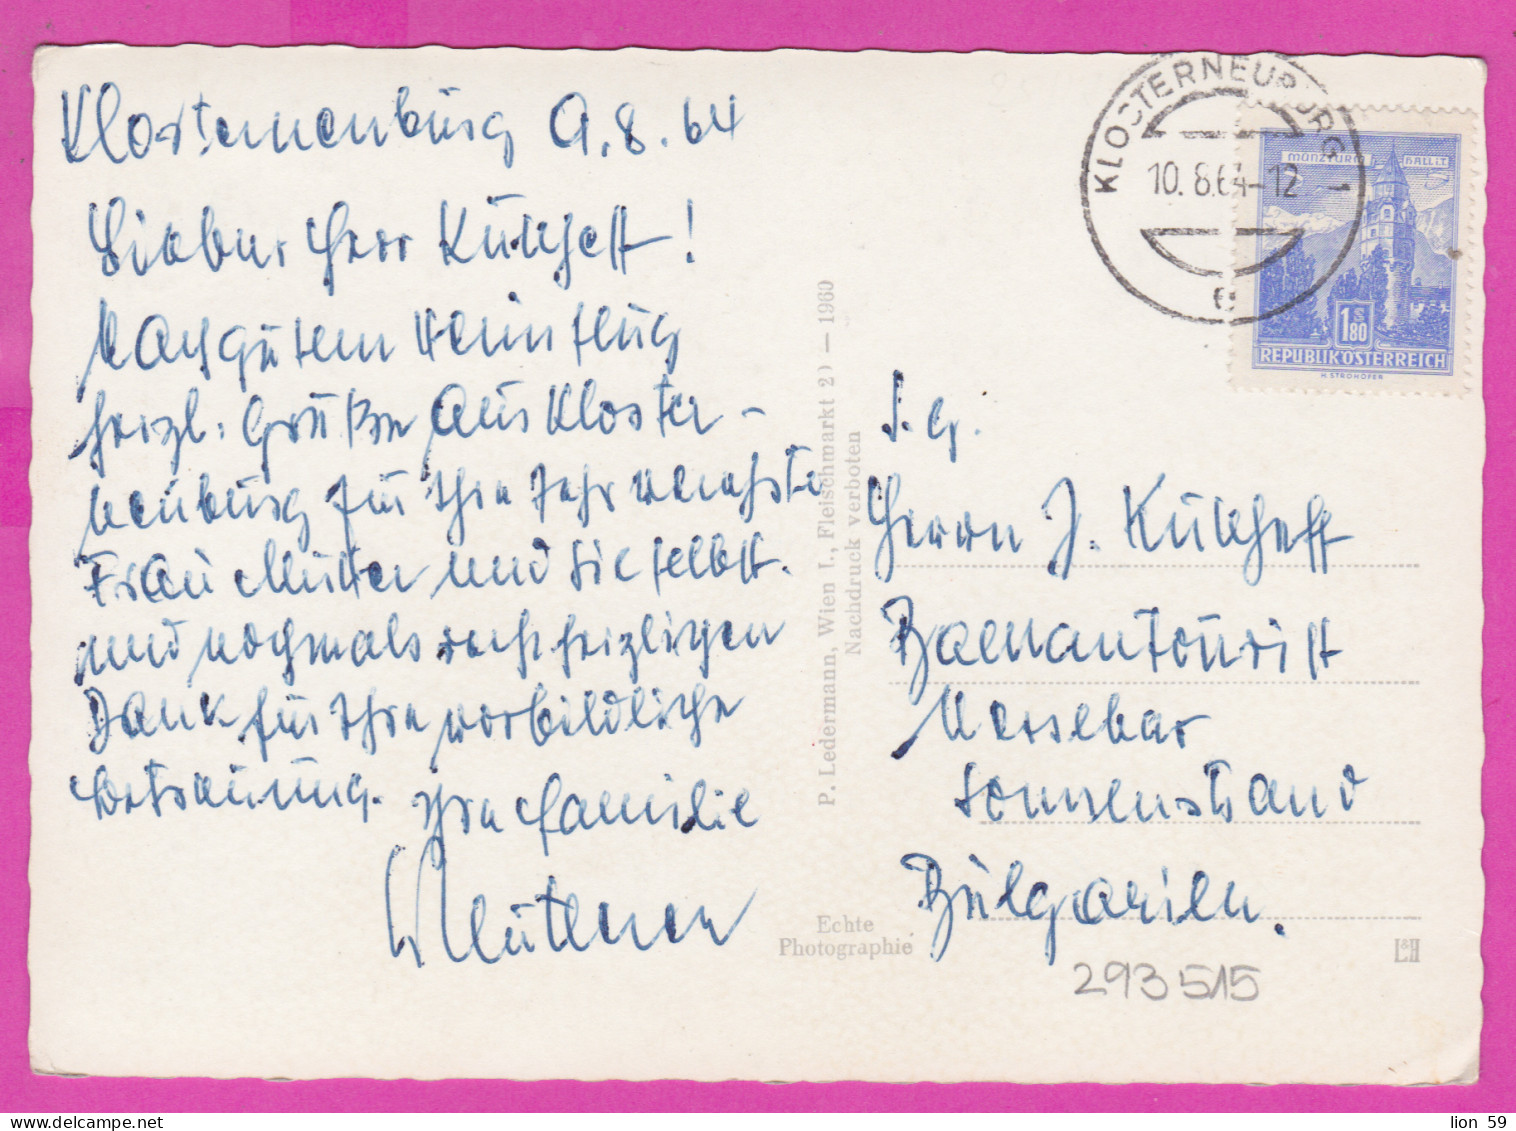 Klosterneuburg 9.8.64
Lieber Herr Külheff!
Nach gutem Heimflug
herzl. Grüße aus Kloster-
neuburg für Ihre sehr verehrte
Frau Mutter und Sie selbst.
und nochmals recht herzlichen
Dank für Ihre vorbildliche
Betreuung. Ihre Familie
KLOSTERNEUBURG 1
10. 8.64-12
e
MÜNZTURM HALL i.T.
1 S 80
REPUBLIK ÖSTERREICH
H. STROHOFER
P. Ledermann, Wien I., Fleischmarkt 2) — 1960
Nachdruck verboten
Echte
Photographie
S.g.
Herrn J. Külheff
Balkantourist
Nessebar
Sonnenstrand
Bulgarien.
L&H
293515
lion 59